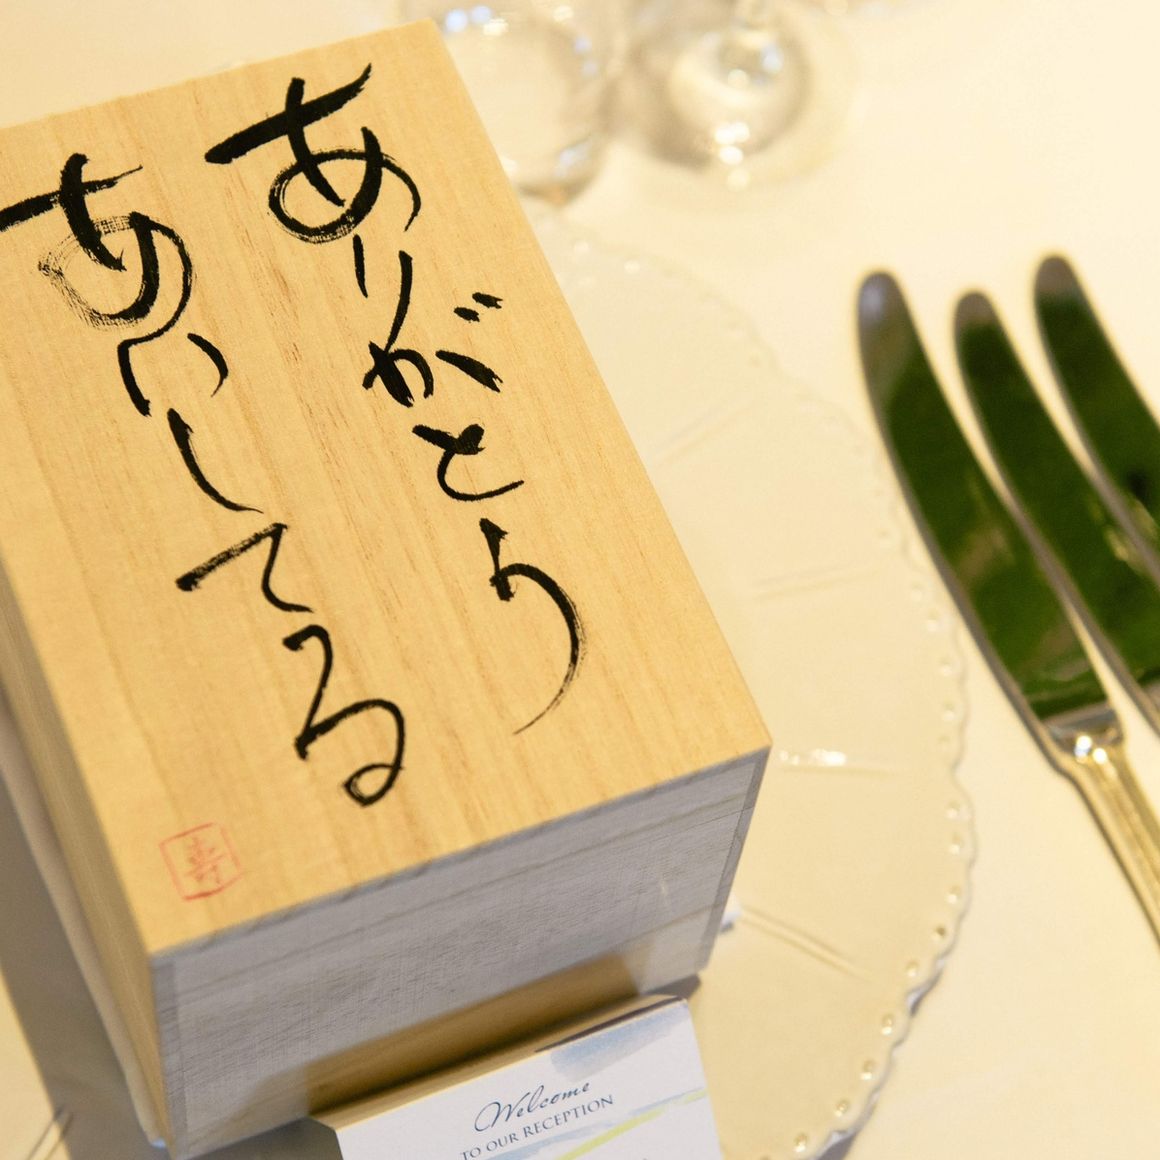 ありがとう
あいしてる
寿
Welcome
TO OUR RECEPTION